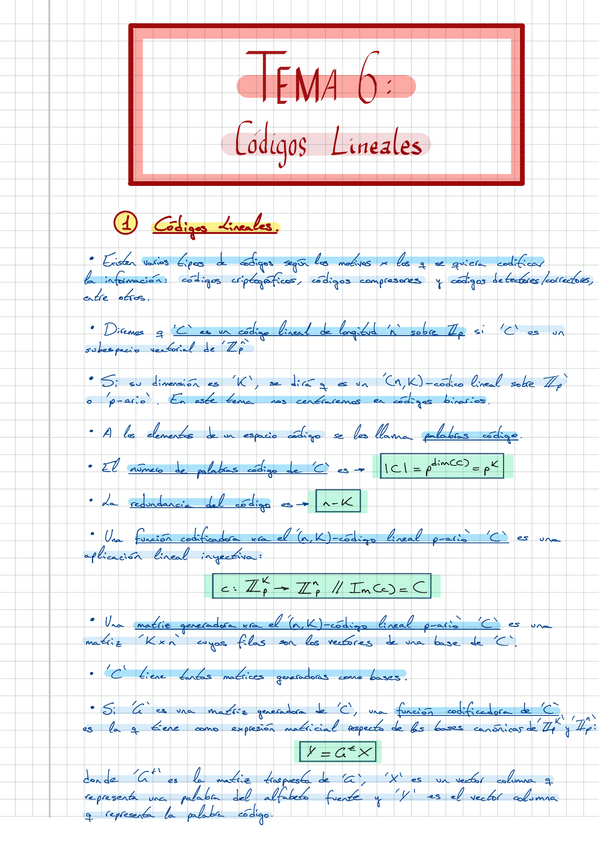 TEMA 6:
Códigos Lineales
1 Códigos Lineales.
• Existen varios tipos de códigos según los motivos x los q se quiera codificar
la información: códigos criptográficos, códigos compresores y códigos detectores/correctores,
entre otros.
• Diremos q 'C' es un código lineal de longitud 'n' sobre ℤp si 'C' es un
subespacio vectorial de 'ℤpⁿ'
• Si su dimensión es 'K', se dirá q es un '(n,K)-códico lineal sobre ℤp'
o 'p-ario'. En este tema nos centraremos en códigos binarios.
• A los elementos de un espacio código se les llama palabras código.
• El número de palabras código de 'C' es → |C| = p^dim(C) = p^K
• La redundancia del código es → n-K
• Una función codificadora xra el '(n,K)-código lineal p-ario' 'C' es una
aplicación lineal inyectiva:
c: ℤp^K → ℤp^n // Im(c) = C
• Una matriz generadora xra el '(n,K)-código lineal p-ario' 'C' es una
matriz 'K×n' cuyas filas son los vectores de una base de 'C'.
• 'C' tiene tantas matrices generadoras como bases.
• Si 'G' es una matriz generadora de 'C', una función codificadora de 'C'
es la q tiene como expresión matricial respecto de las bases canónicas de 'ℤp^K' y 'ℤp^n':
Y = G^t X
donde 'G^t' es la matriz traspuesta de 'G', 'X' es un vector columna q
representa una palabra del alfabeto fuente y 'Y' es el vector columna
q representa la palabra código.